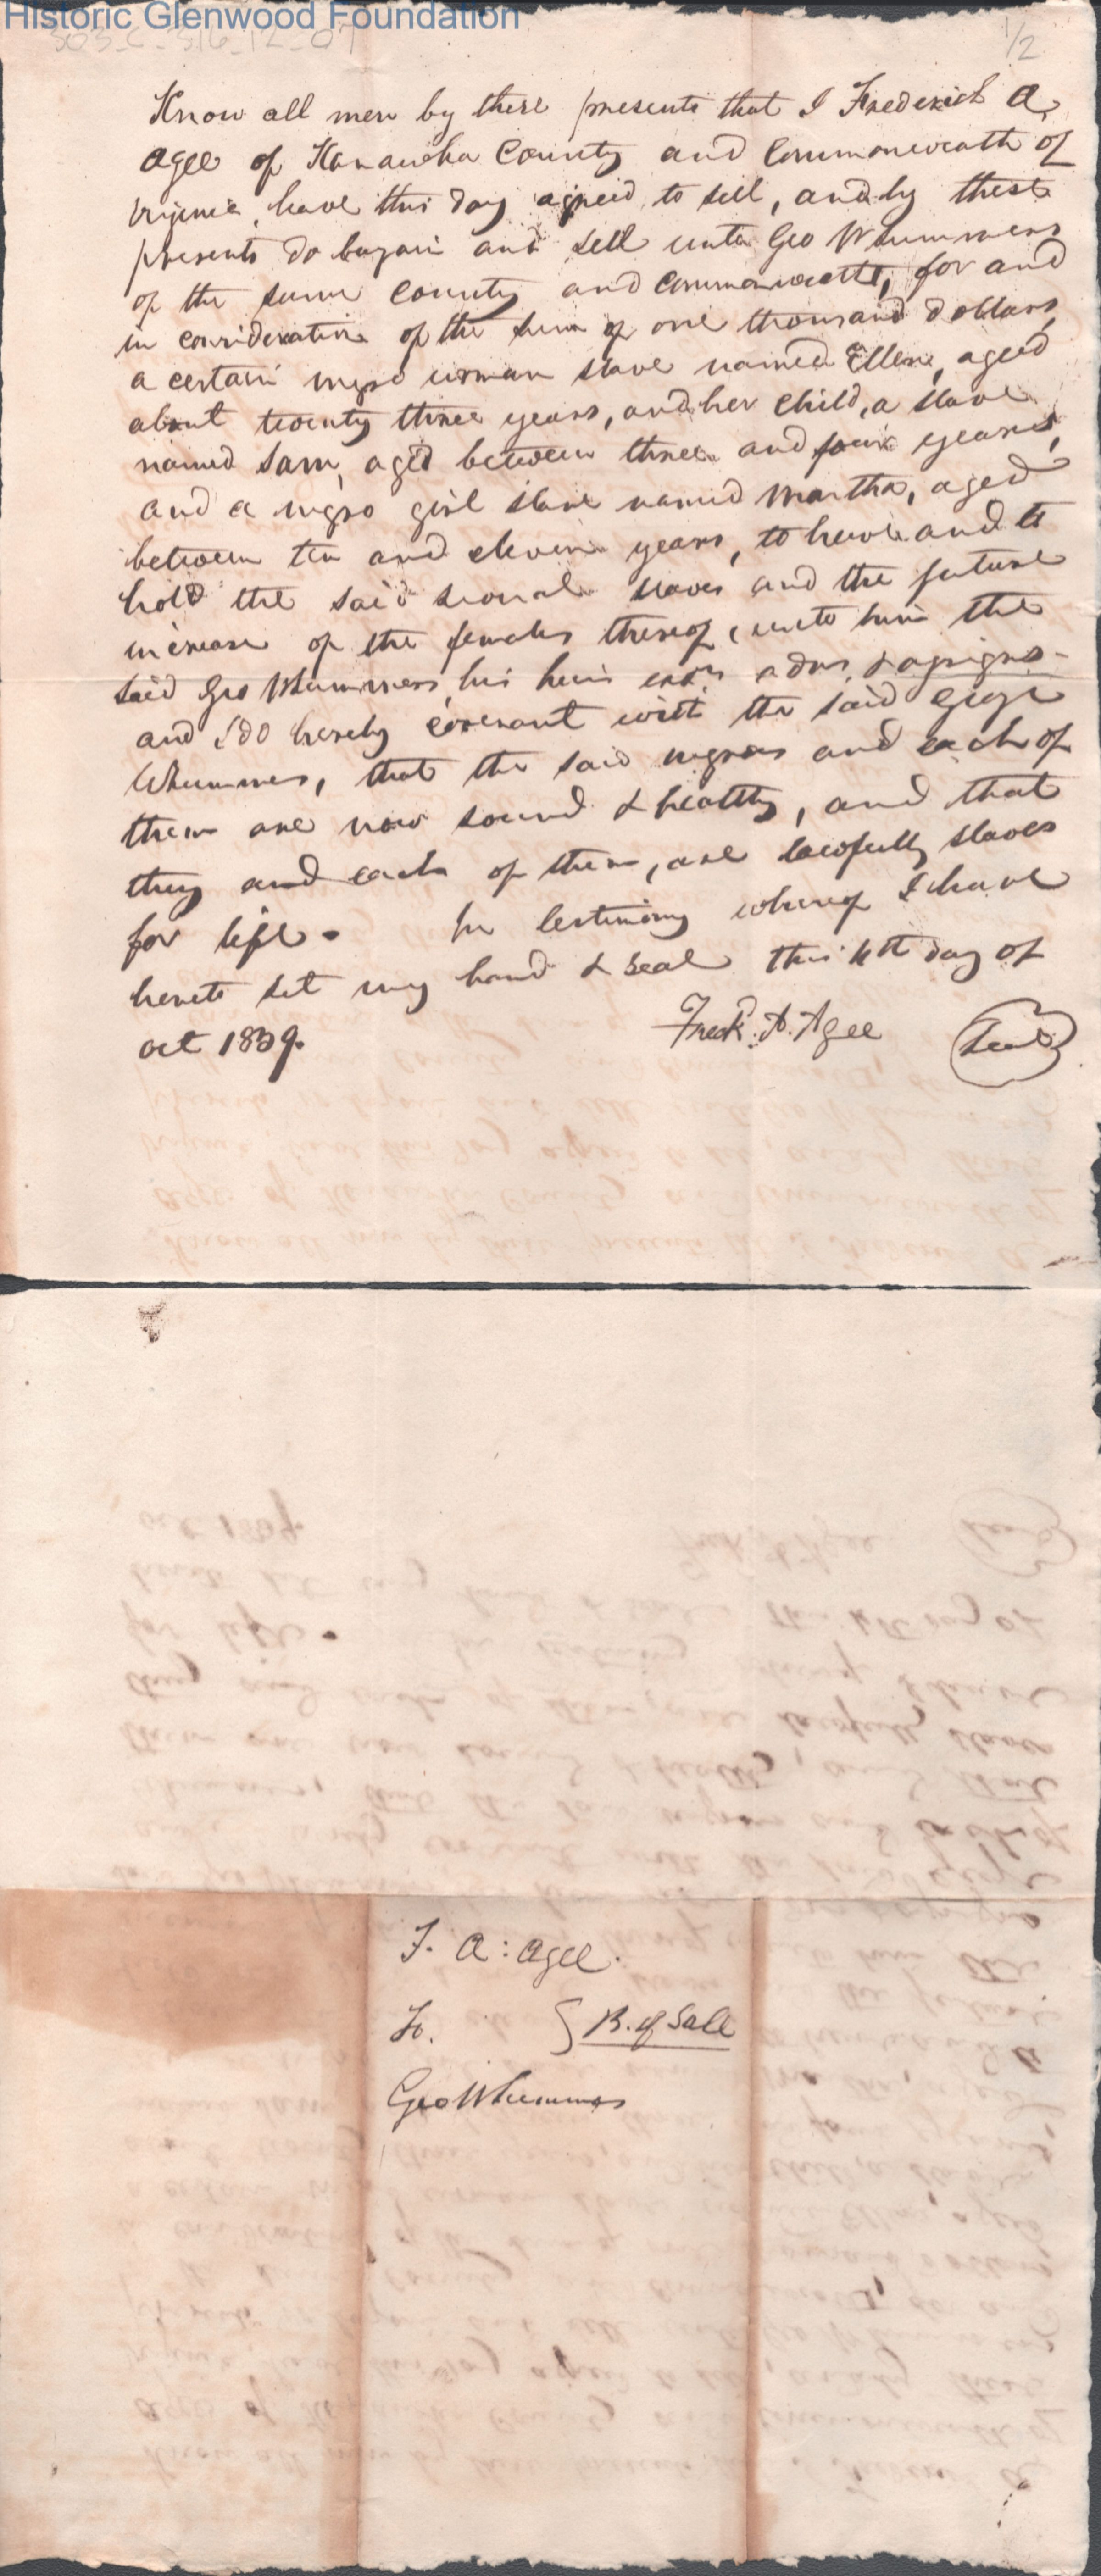 Historic Glenwood Foundation
303-C-316-12-07
1/2
Know all men by these presents that I Frederick A.
Agee of Kanawha County and Commonwealth of
Virginia, have this day agreed to sell, and by these
presents do bargain and sell unto Geo W Summers
of the same County and Commonwealth, for and
in consideration of the sum of one thousand dollars,
a certain negro woman slave named Ellen, aged
about twenty three years, and her child, a slave
named Sam, aged between three and four years,
and a negro girl slave named Martha, aged
between ten and eleven years, to have and to
hold the said several slaves and the future
increase of the females thereof, unto him the
said Geo W Summers, his heirs exors adms, & assigns -
and I do hereby covenant with the said George
W Summers, that the said negroes and each of
them are now sound & healthy, and that
they and each of them, are lawfully slaves
for life. In testimony whereof I have
hereto set my hand & seal this day of
Oct 1839.
Fredk. A. Agee Seal
F. A: Agee.
To. { B. of Sale
Geo W Summers